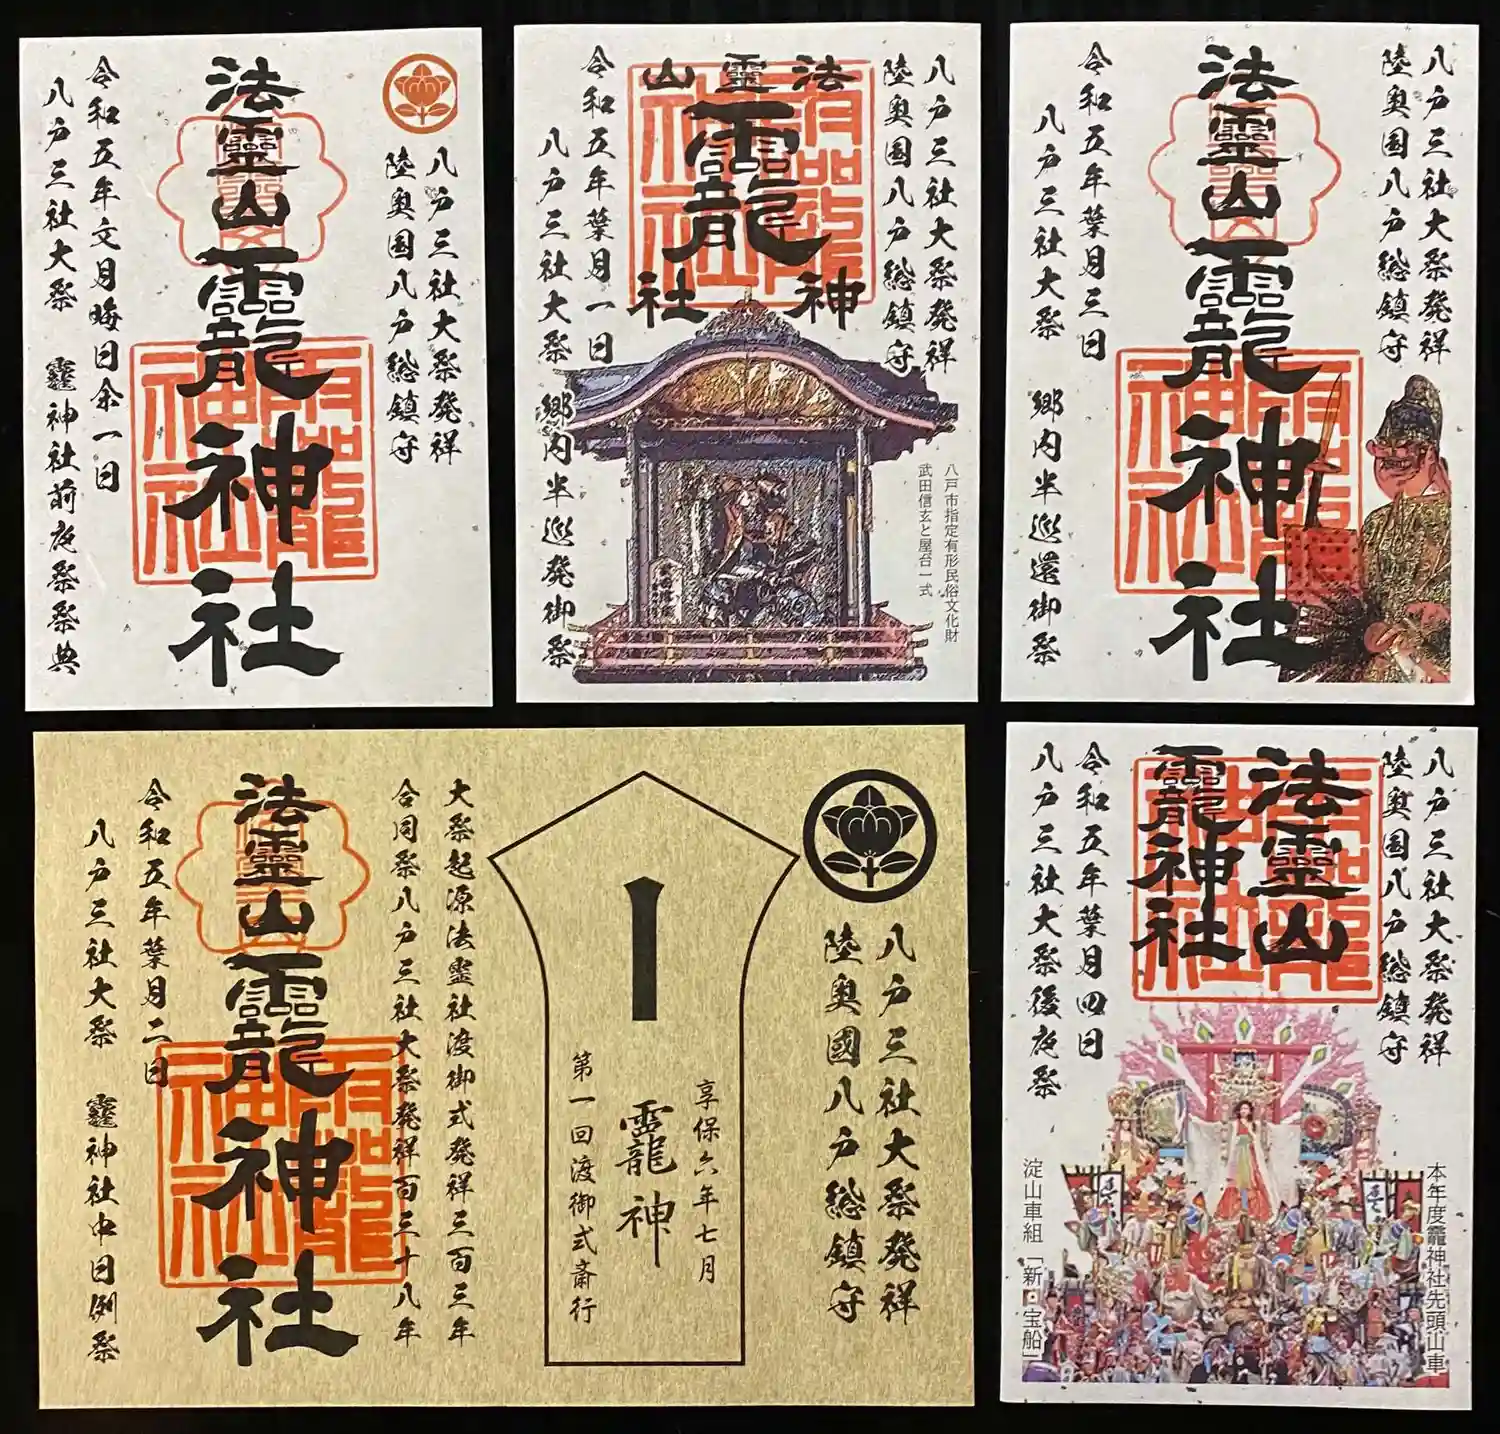 八戸三社大祭発祥
陸奥国八戸總鎮守
法靈山龗神社
龗神社
令和五年文月晦日余一日
八戸三社大祭 龗神社前夜祭祭典
八戸三社大祭発祥
陸奥国八戸總鎮守
法靈山
龗
神社
龗神社
令和五年葉月一日
八戸三社大祭 郷内半巡発御祭
八戸市指定有形民俗文化財
武田信玄と屋台一式
八戸三社大祭発祥
陸奥国八戸總鎮守
法靈山龗神社
龗神社
令和五年葉月三日
八戸三社大祭 郷内半巡還御祭
八戸三社大祭発祥
陸奥國八戸總鎮守
享保六年七月
龗神
第一回渡御式斎行
大祭起源法霊社渡御式発祥三百三年
合同祭八戸三社大祭発祥百三十八年
法靈山龗神社
龗神社
令和五年葉月二日
八戸三社大祭 龗神社中日例祭
八戸三社大祭発祥
陸奥国八戸總鎮守
法靈山
龗神社
龗神社
令和五年葉月四日
八戸三社大祭後夜祭
本年度龗神社先頭山車
淀山車組「新・宝船」